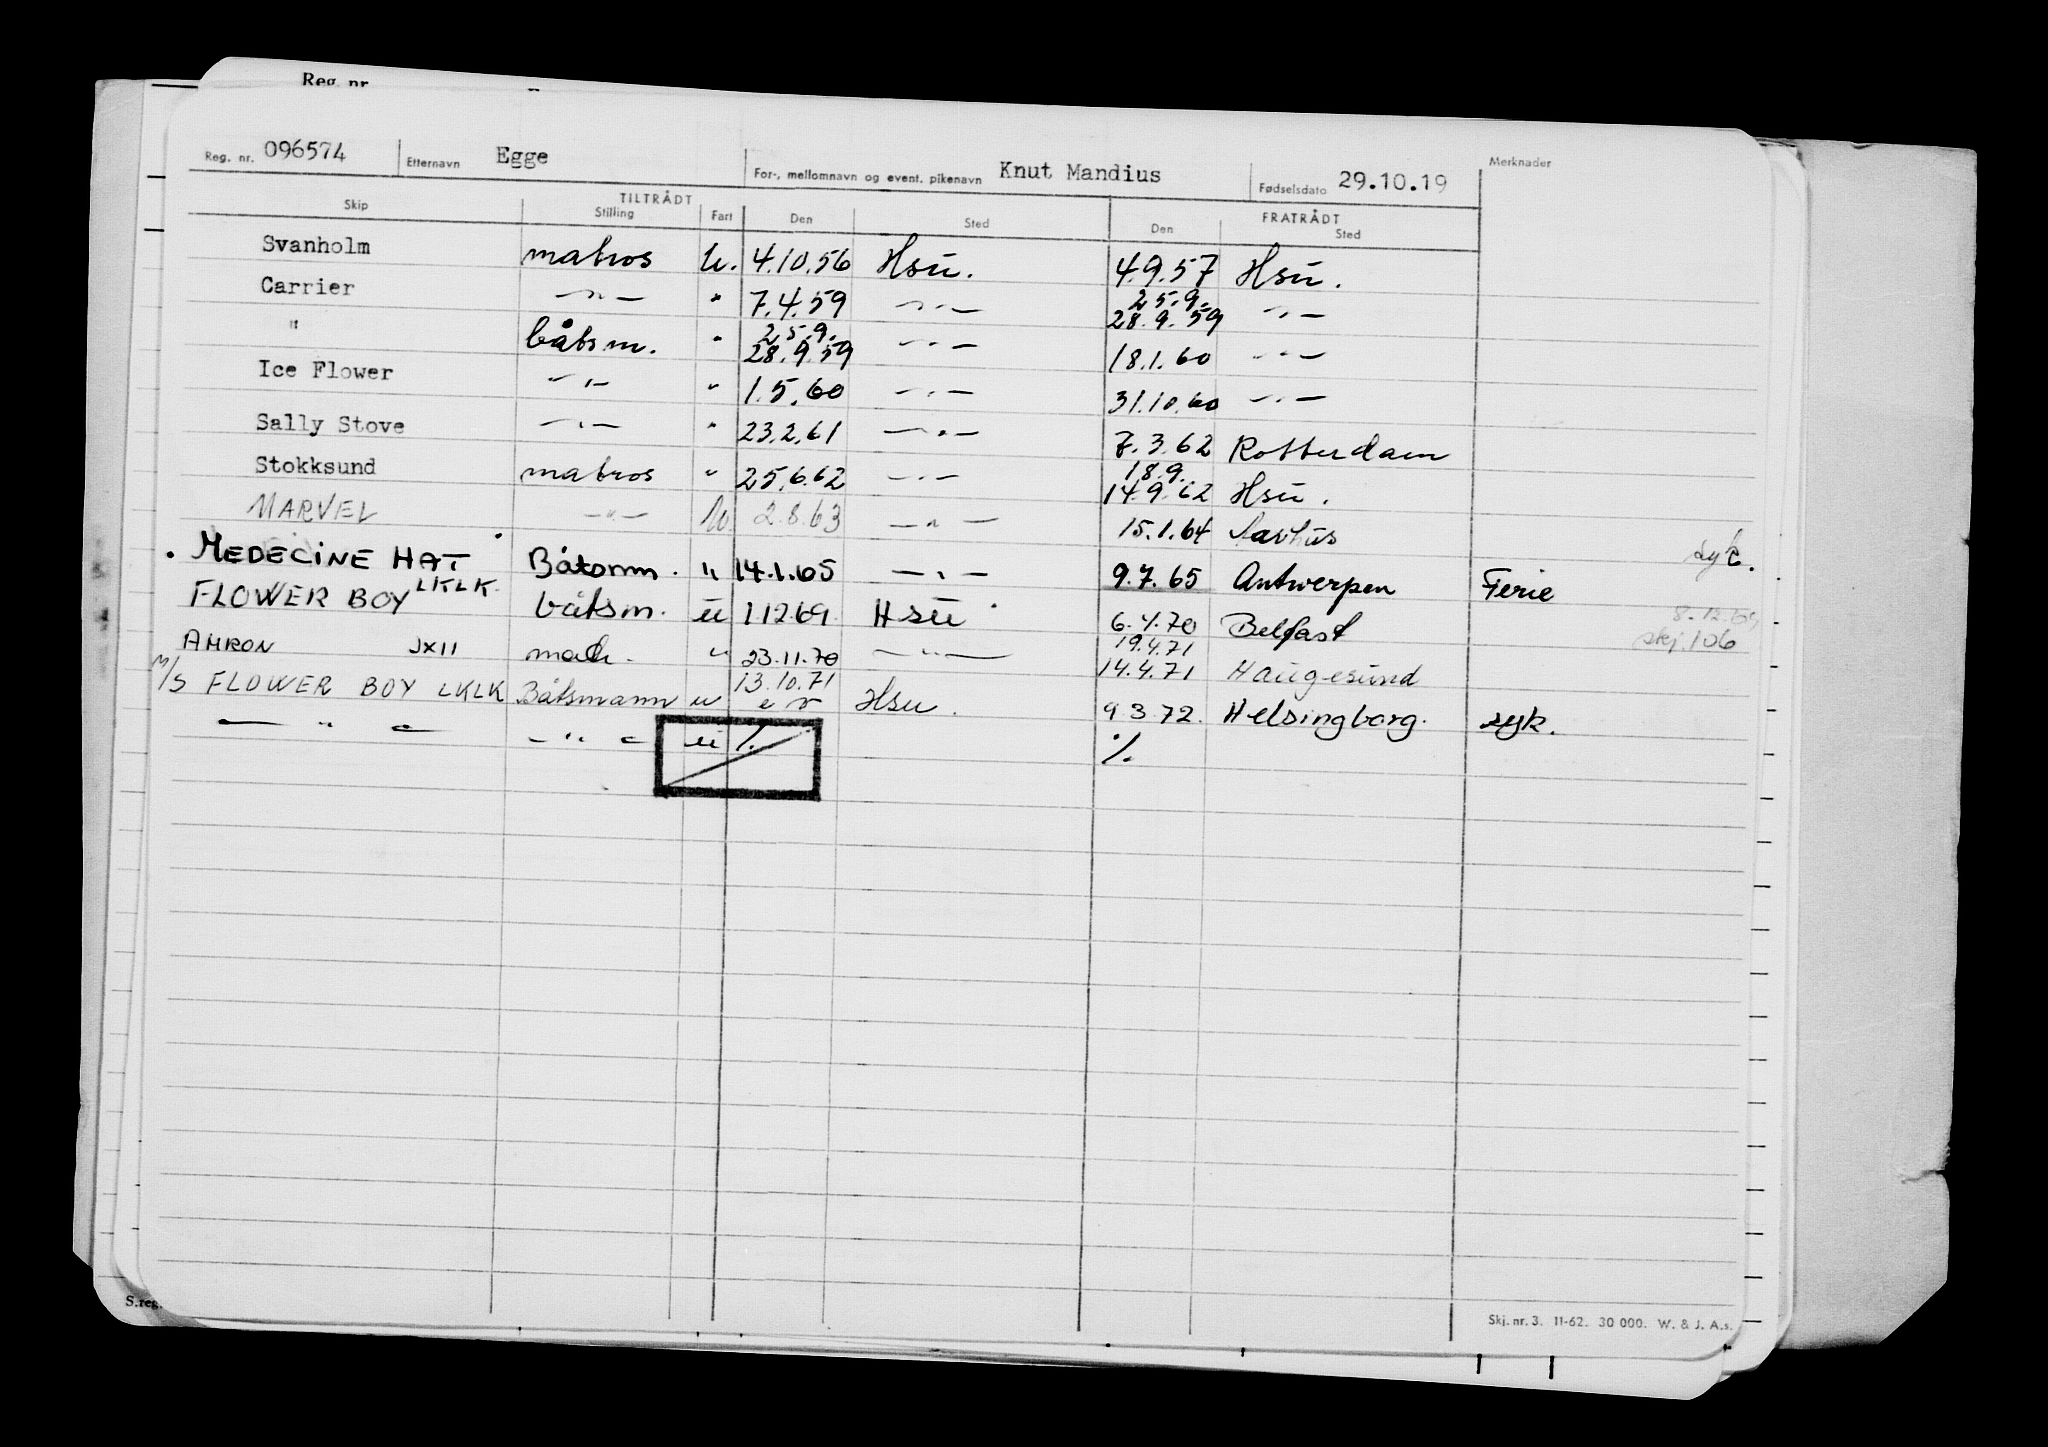 Reg. nr.
Reg. nr. 096574 Etternavn Egge For-, mellomnavn og event. pikenavn Knut Mandius Fødselsdato 29.10.19 Merknader
TILTRÅDT FRATRÅDT
Skip Stilling Fart Den Sted Den Sted
Svanholm matros u. 4.10.56 Hsu. 4.9.57 Hsu.
25.9.
Carrier —"— " 7.4.59 —"— 28.9.59 —"—
25.9.
" båtsm. " 28.9.59 —"— 18.1.60 —"—
Ice Flower —"— " 1.5.60 —"— 31.10.60 —"—
Sally Stove —"— " 23.2.61 —"— 7.3.62 Rotterdam
18.9.
Stokksund matros " 25.6.62 —"— 14.9.62 Hsu.
MARVEL —"— 2.8.63 —"— 15.1.64 Aarhus syk.
. MEDECINE HAT Båtsmn. " 14.1.65 —"— 9.7.65 Antwerpen Ferie
FLOWER BOY LKLK. båtsm. u 1.12.69 Hsu 6.4.70 Belfast 8.12.69 skj. 106
19.4.71
AMRON JXII " 23.11.70 —"— 14.4.71 Haugesund
13.10.71
M/S FLOWER BOY LKLK Båtsmann u Hsu. 9.3.72. Helsingborg. syk.
— " — — " — u /. ./.
S.reg.
Skj. nr. 3. 11-62. 30 000. W. & J. A.s.